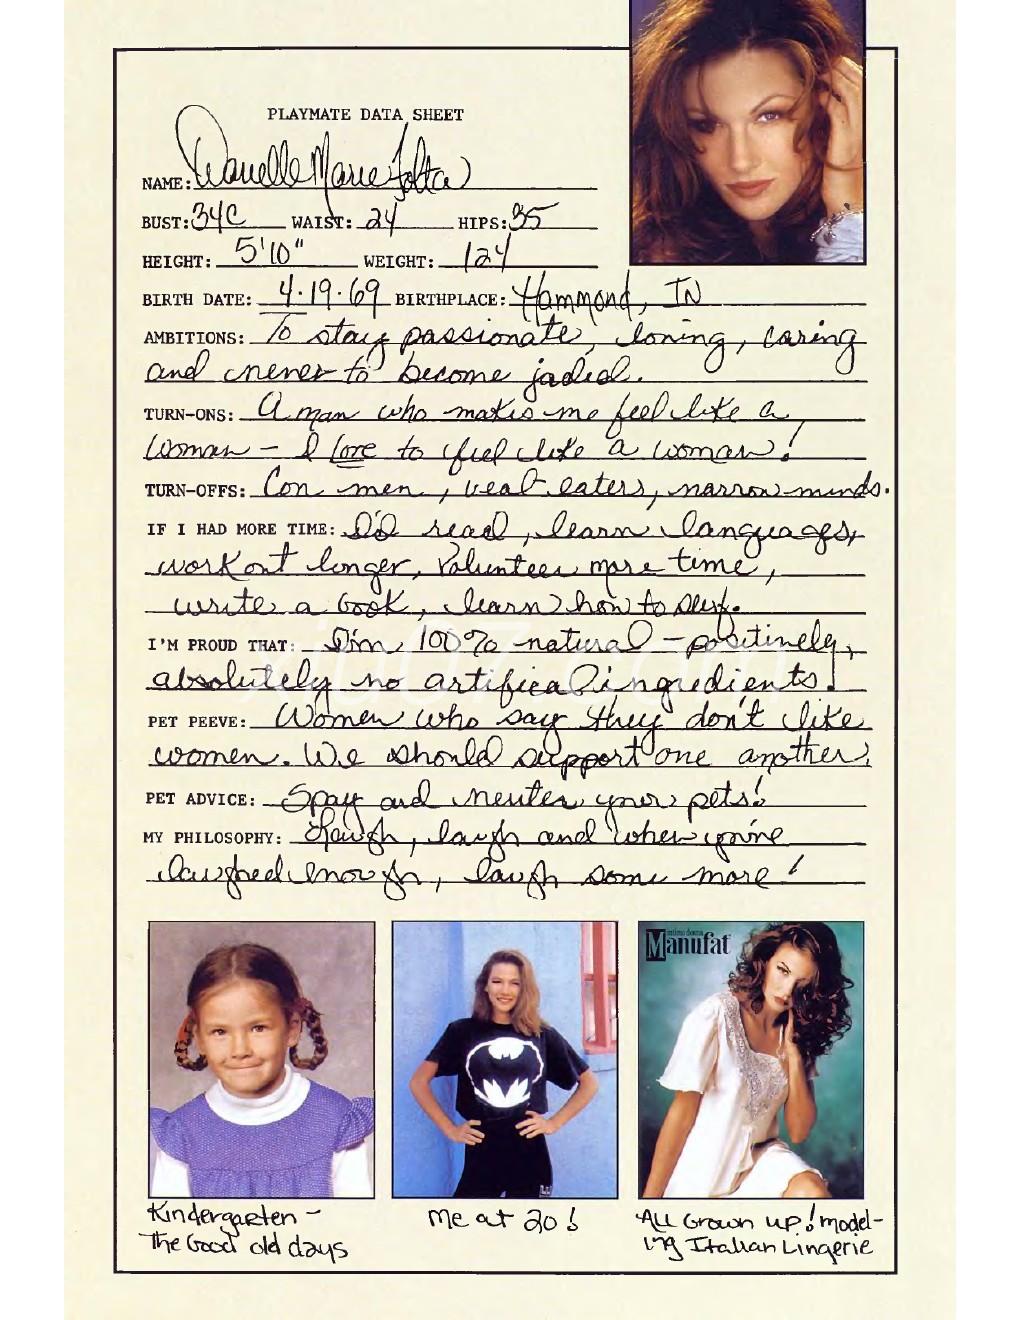 PLAYMATE DATA SHEET
NAME: Danelle Marie Folta
BUST: 34C WAIST: 24 HIPS: 35
HEIGHT: 5'10" WEIGHT: 124
BIRTH DATE: 4·19·69 BIRTHPLACE: Hammond, IN
AMBITIONS: To stay passionate, loving, caring
and never to become jaded.
TURN-ONS: A man who makes me feel like a
woman – I love to feel like a woman!
TURN-OFFS: Con men, veal eaters, narrow minds.
IF I HAD MORE TIME: I'd read, learn languages,
workout longer, volunteer more time,
write a book, learn how to surf.
I'M PROUD THAT: I'm 100% natural – positively,
absolutely no artifical ingredients!
PET PEEVE: Women who say they don't like
women. We should support one another.
PET ADVICE: Spay and neuter your pets!
MY PHILOSOPHY: Laugh, laugh and when you've
laughed enough, laugh some more!
intimo donna
Manufat
Kindergarten –
The Good old days
Me at 20!
All Grown up! model-
ing Italian Lingerie